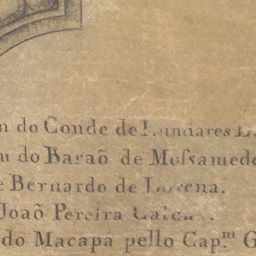 n do Conde de Lumiares L
m do Baraõ de Mossamede
e Bernardo de Lorena.
João Pereira Caldas.
do Macapa pello Cap.ᵐ G